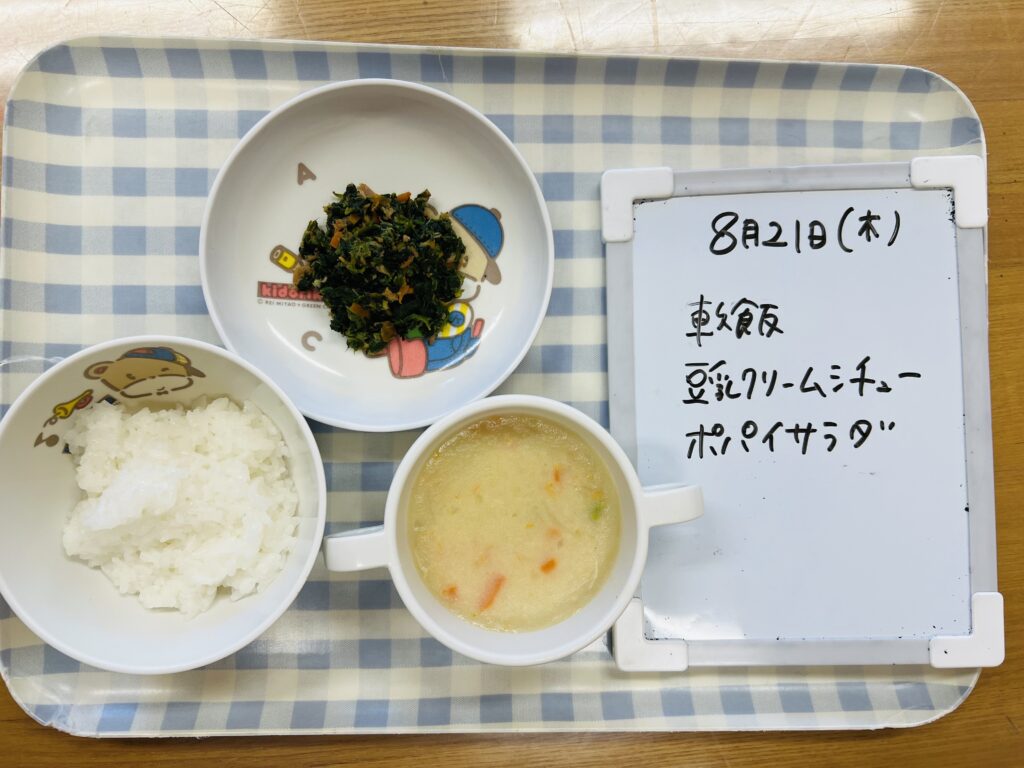 8月21日(木)
軟飯
豆乳クリームシチュー
ポパイサラダ
A
C